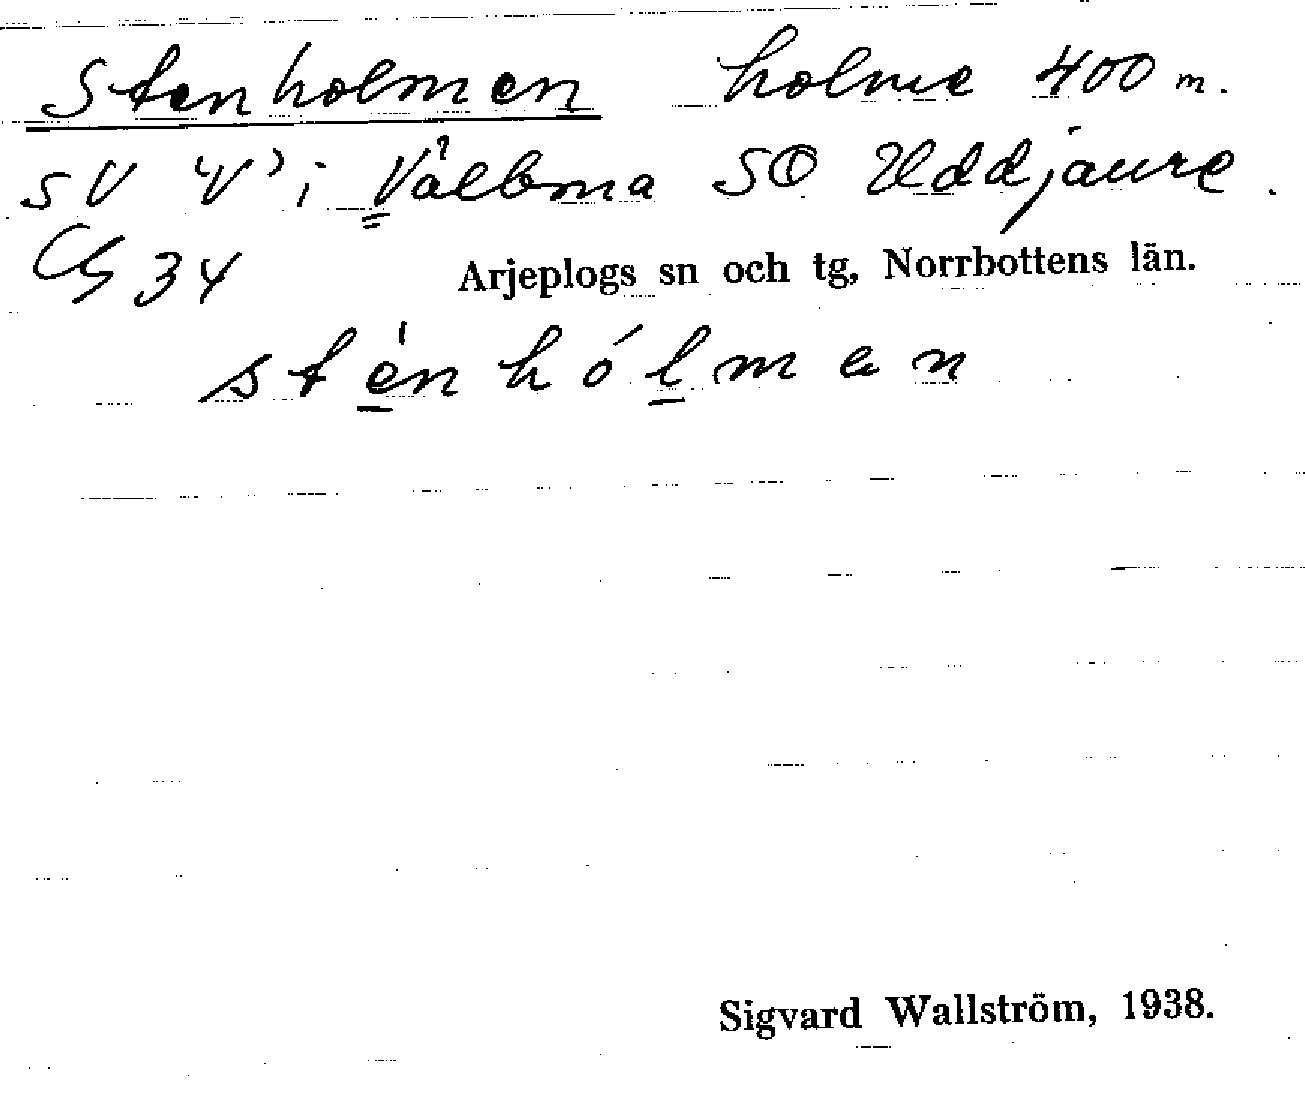 Stenholmen holme 400 m.
SV 'V' i Vålbma SO Uddjaure.
G 34 Arjeplogs sn och tg, Norrbottens län.
sténhólmen
Sigvard Wallström, 1938.